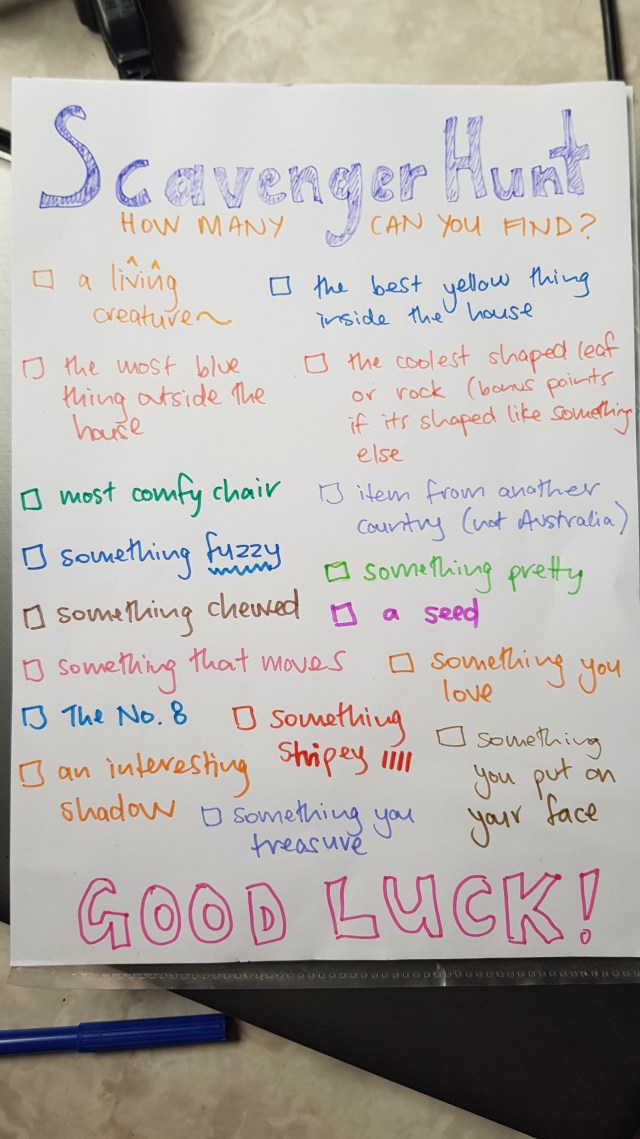 Scavenger Hunt
HOW MANY CAN YOU FIND?
a living
creature
the best yellow thing
inside the house
the most blue
thing outside the
house
the coolest shaped leaf
or rock (bonus points
if its shaped like something
else
most comfy chair
item from another
country (not Australia)
something fuzzy
something pretty
something chewed
a seed
something that moves
something you
love
The No. 8
something
stripey
something
you put on
your face
an interesting
shadow
something you
treasure
GOOD LUCK!